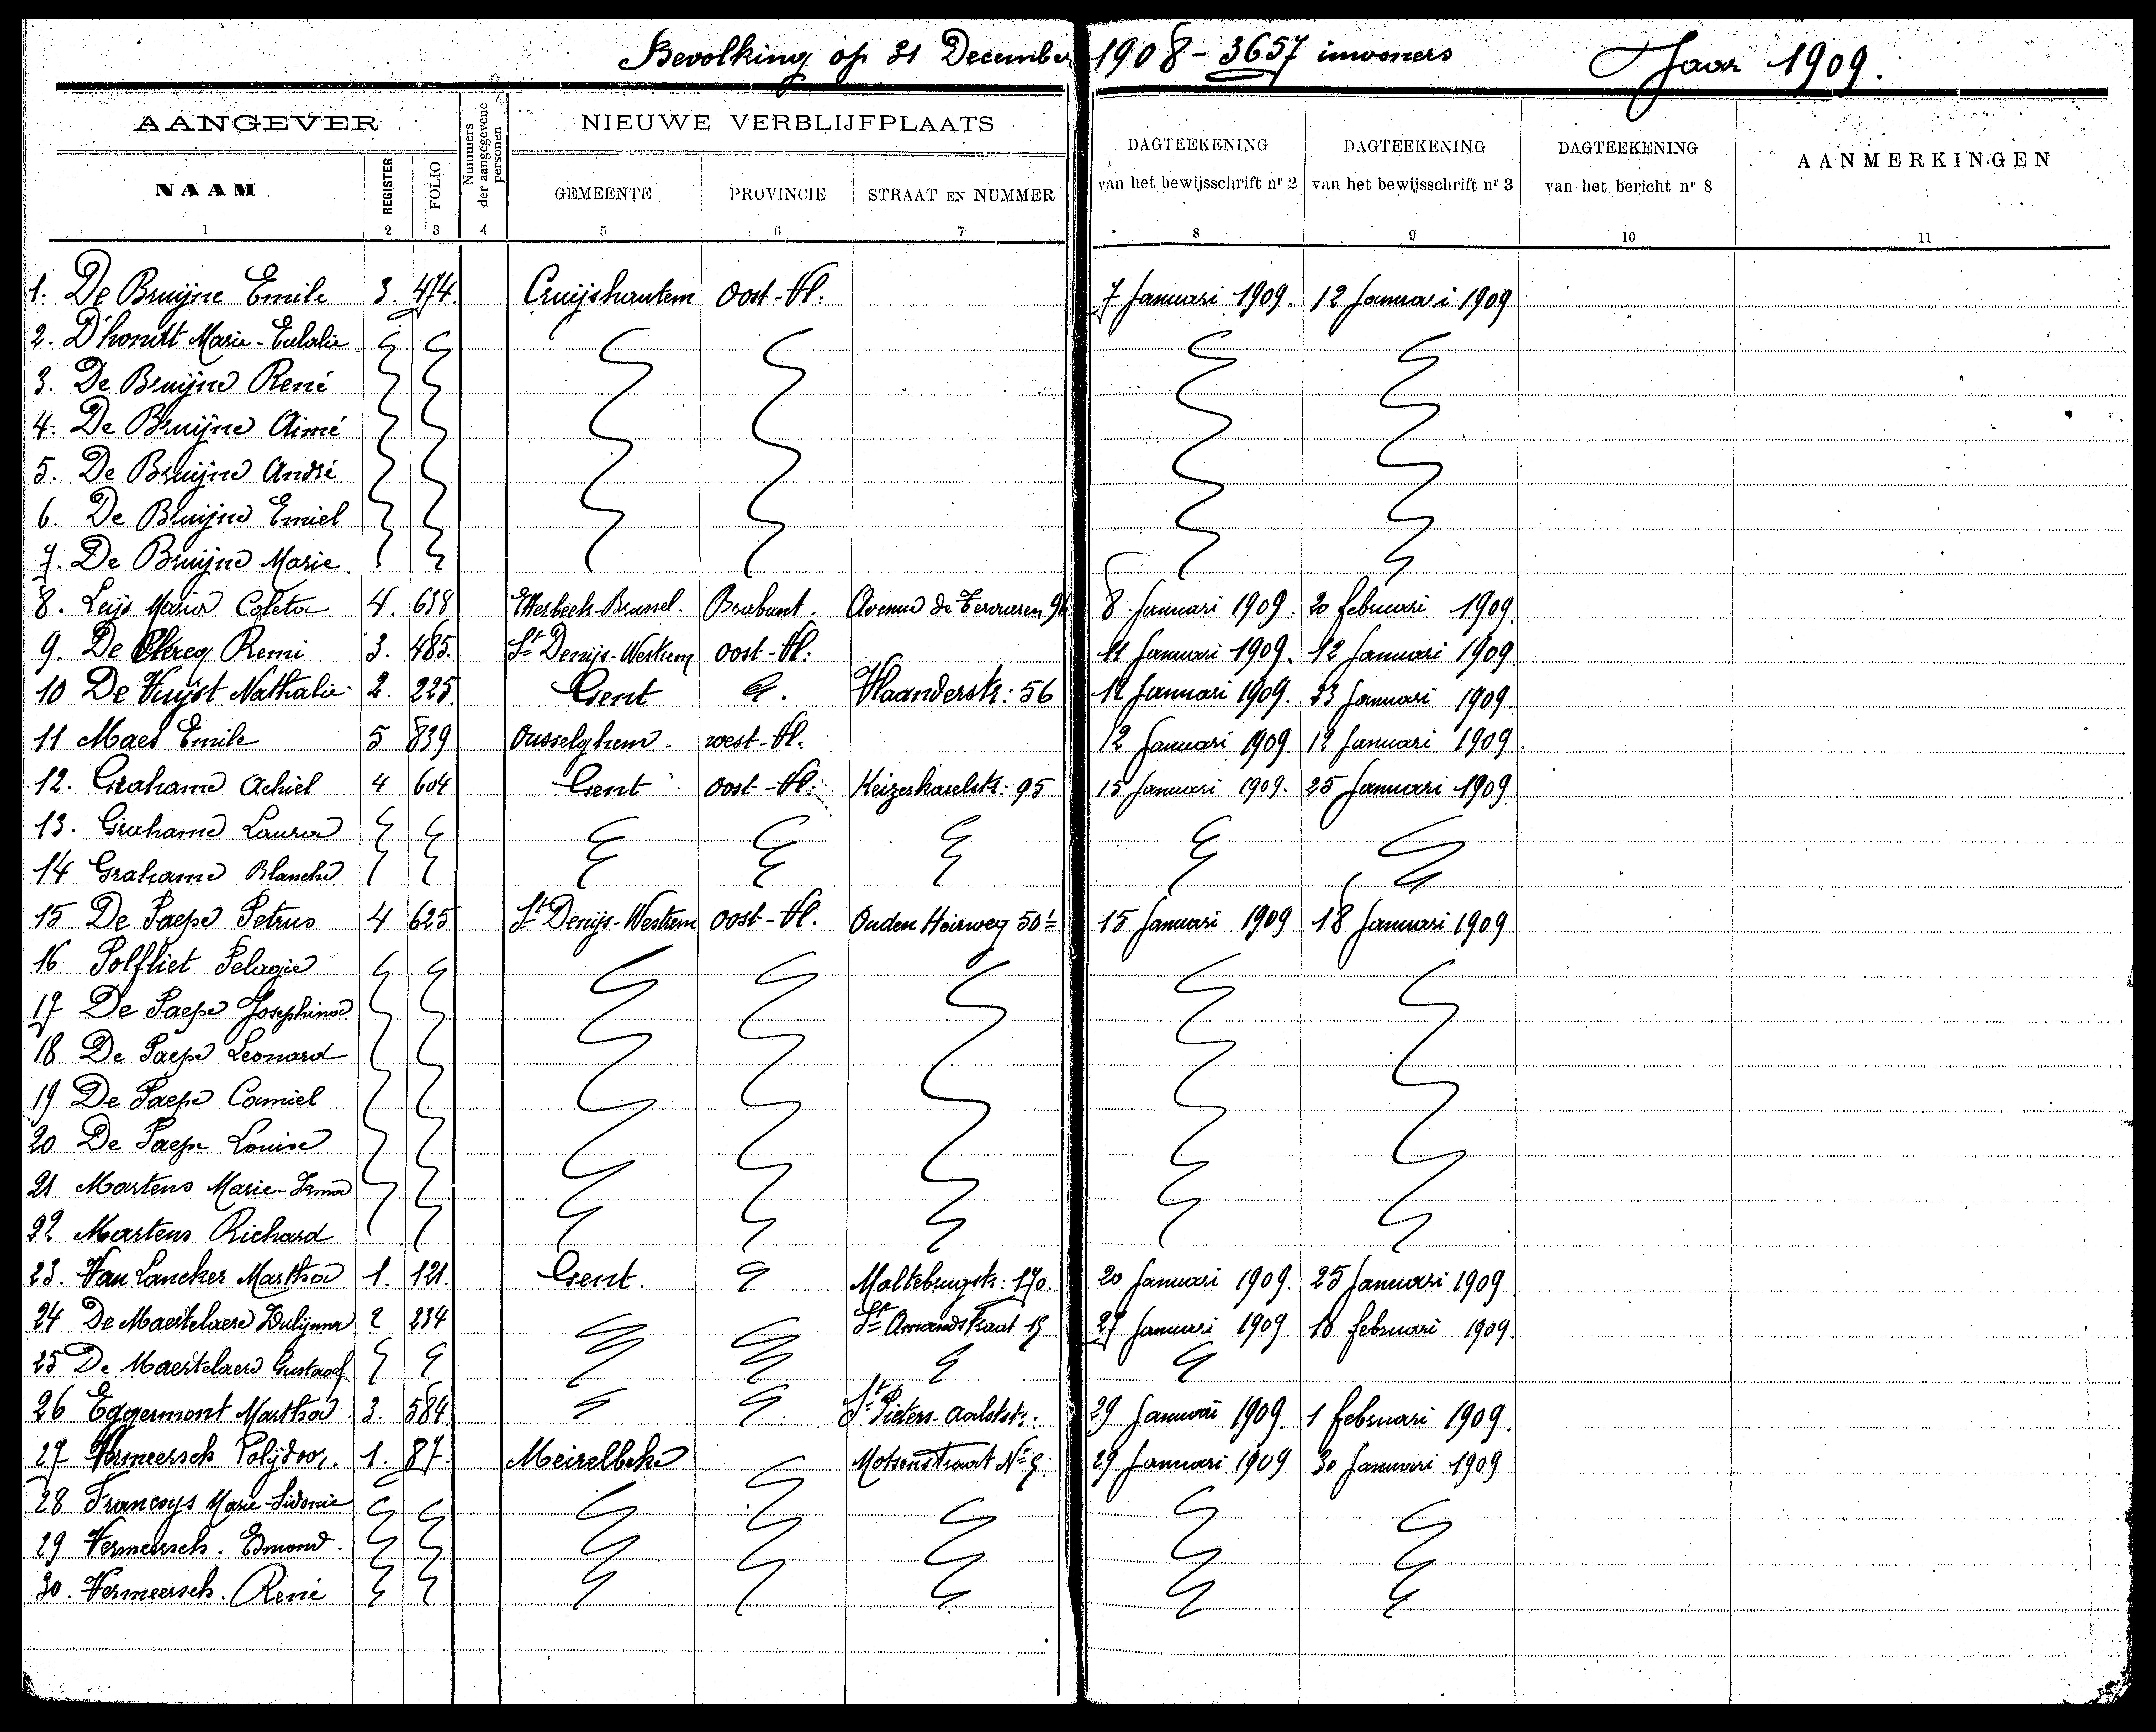 Bevolking op 31 December 1908 - 3657 inwoners Jaar 1909.
AANGEVER
Nummers der aangegevene personen
NIEUWE VERBLIJFPLAATS
NAAM REGISTER FOLIO GEMEENTE PROVINCIE STRAAT EN NUMMER
DAGTEEKENING van het bewijsschrift nr 2
DAGTEEKENING van het bewijsschrift nr 3
DAGTEEKENING van het bericht nr 8
AANMERKINGEN
1 2 3 4 5 6 7 8 9 10 11
1. De Bruijne Emile 3. 474. Cruijshautem Oost-Vl. 7 Januari 1909. 12 Januari 1909
2. D'hondt Marie-Eulalie
3. De Bruijne René
4. De Bruijne Aimé
5. De Bruijne André
6. De Bruijne Emiel
7. De Bruijne Marie.
8. Leijs Maria Coleta 4. 638 Etterbeek-Brussel. Brabant. Avenue de Tervueren 8 Januari 1909. 20 februari 1909.
9. De Remi 3. 485. St Denijs-Westrem Oost-Vl. 11 Januari 1909. 12 Januari 1909
10 De Vuijst Nathalie 2. 225. Gent Vlaanderstr: 56 12 Januari 1909. 23 Januari 1909.
11 Maes Emile 5 839 Ousselghem. west-Vl. 12 Januari 1909. 12 Januari 1909.
12. Grahame Achiel 4 604 Gent Oost-Vl: Keizerkarelstr: 95 15 Januari 1909. 25 Januari 1909
13. Grahame Laura
14 Grahame Blanche
15 De Paepe Petrus 4 625 St Denijs-Westrem Oost-Vl. Ouden Heirweg 50 15 Januari 1909 18 Januari 1909
16 Polfliet Pelagie
17 De Paepe Josephina
18 De Paepe Leonard
19 De Paepe Camiel
20 De Paepe Louise
21 Martens Marie-Irma
22 Martens Richard
23. Van Lancker Martha 1. 121. Gent. Maltebrugstr: 170. 20 Januari 1909. 25 Januari 1909
24 De Maertelaere 2 234 St Amandstraat 15 27 Januari 1909 18 februari 1909.
25 De Maertelaere Gustaaf
26 Eggermont Martha 3. 584. St Pieters-Aalststr. 29 Januari 1909. 1 februari 1909.
27 Vermeersch Polijdoor. 1. 87. Meirelbeke No 29 Januari 1909 30 Januari 1909
28 Francoys Marie-Sidonie
29 Vermeersch. Edmond.
30. Vermeersch. René